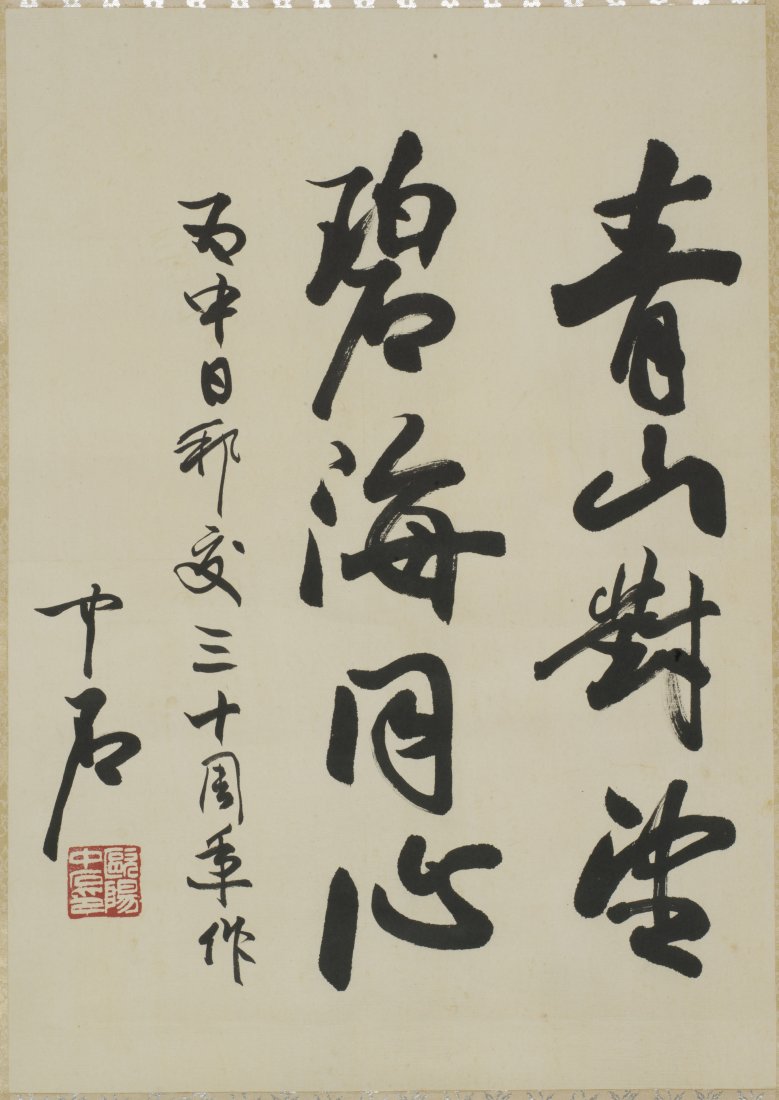 青山對望
碧海同心
為中日邦交三十周年作
中石
歐陽
中石印